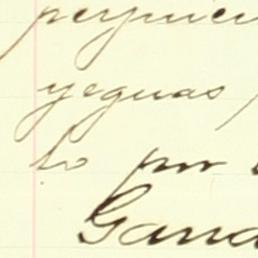 perjuici
yeguas
to por
Gana